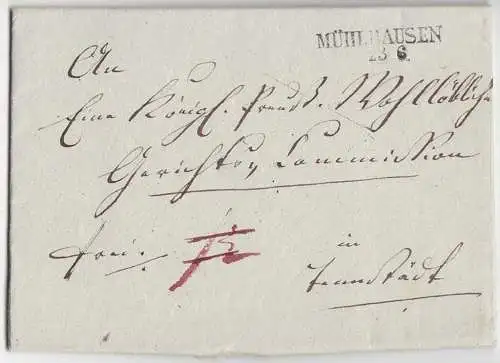 MÜHLHAUSEN
23 6.
An
Eine Königl. Preuß. Wohllöbliche
Gerichts Commission
frei.
in
Tennstädt